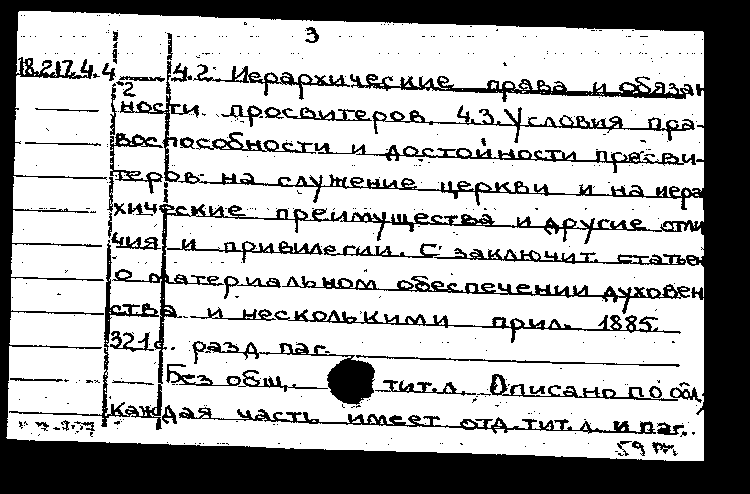 3
18.217.4.4 4.2. Иерархические права и обязан
2
ности просвитеров. 4.3. Условия пра-
воспособности и достойности пресви-
теров на служение церкви и на иера
хические преимущества и другие отли
чия и привилегии. С заключит. статьей
о материальном обеспечении духовен
ства и несколькими прил. 1885.
321с. разд. паг.
Без общ. тит. л. Описано по обл.,
каждая часть имеет отд. тит. л. и паг.